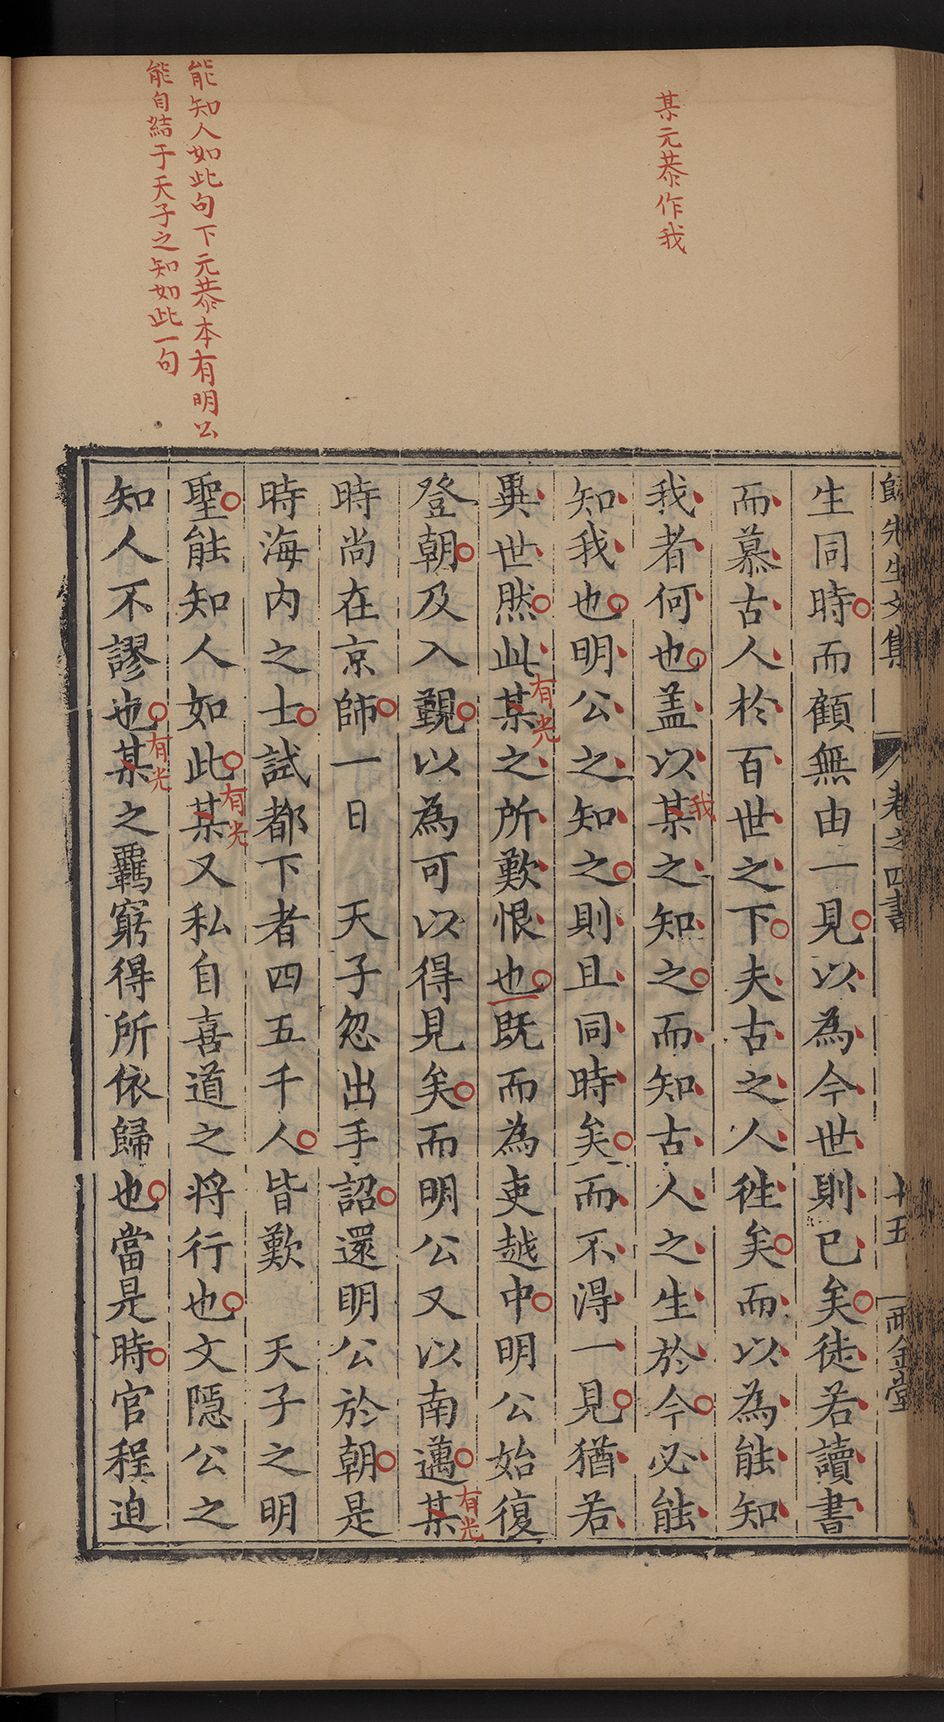 某元恭作我
能知人如此句下元恭本有明公
能自結于天子之知如此一句
歸先生文集
卷之四書
十五
雨金堂
生同時而顧無由一見以為今世則已矣徒若讀書
而慕古人於百世之下夫古之人徃矣而以為能知
我者何也盖以某之知之而知古人之生於今必能
我
知我也明公之知之則且同時矣而不得一見猶若
異世然此某之所歎恨也既而為吏越中明公始復
有光
登朝及入覲以為可以得見矣而明公又以南邁某
有光
時尚在京師一日 天子忽出手詔還明公於朝是
時海内之士試都下者四五千人皆歎 天子之明
聖能知人如此某又私自喜道之将行也文隱公之
有光
知人不謬也某之羈窮得所依歸也當是時官程迫
有光